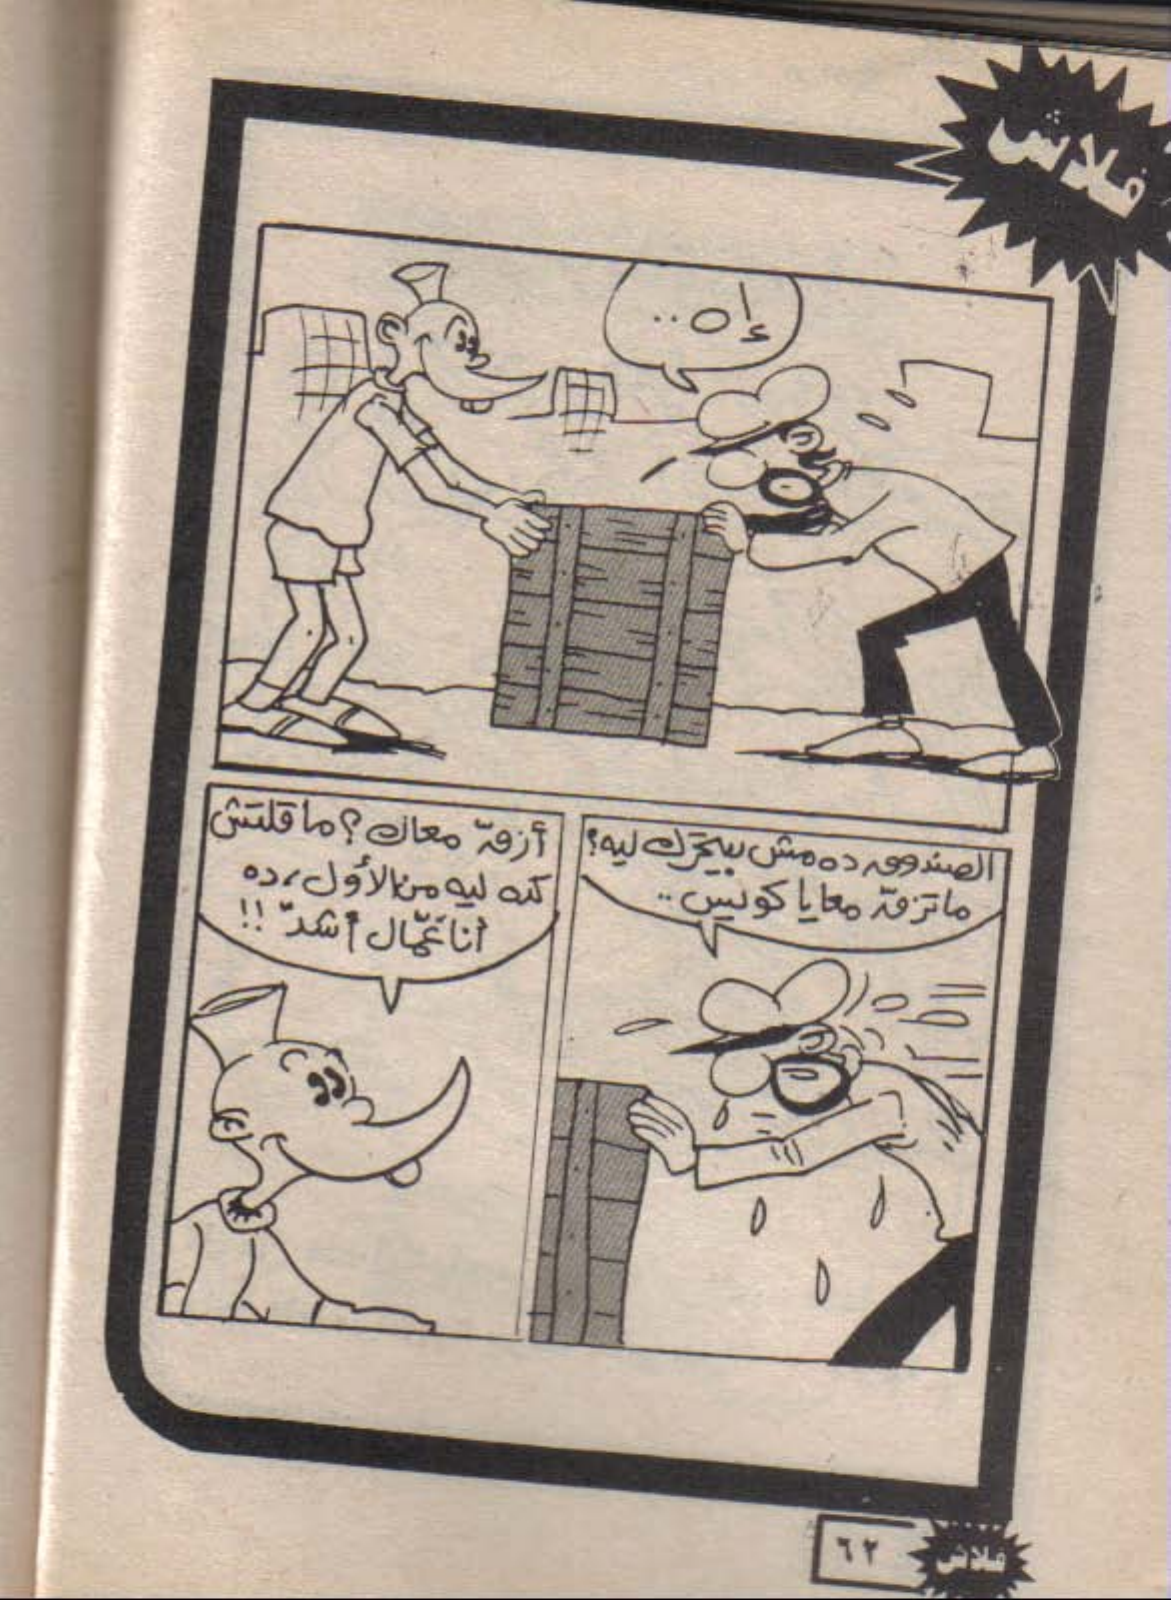 فلاش
إه ..
الصندوق ده مش بيتحرّك ليه؟
ماتزقّ معايا كويس ..
أزقّ معاك؟ ما قلتش
كده ليه من الأول، ده
أنا عمّال أشدّ !!
٦٢
فلاش